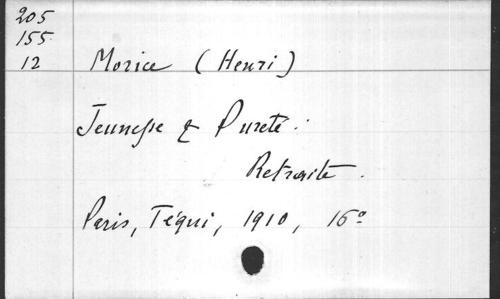 205
155
12 Morice (Henri)
Jeunesse & Pureté.
Retraite.
Paris, Téqui, 1910, 16°